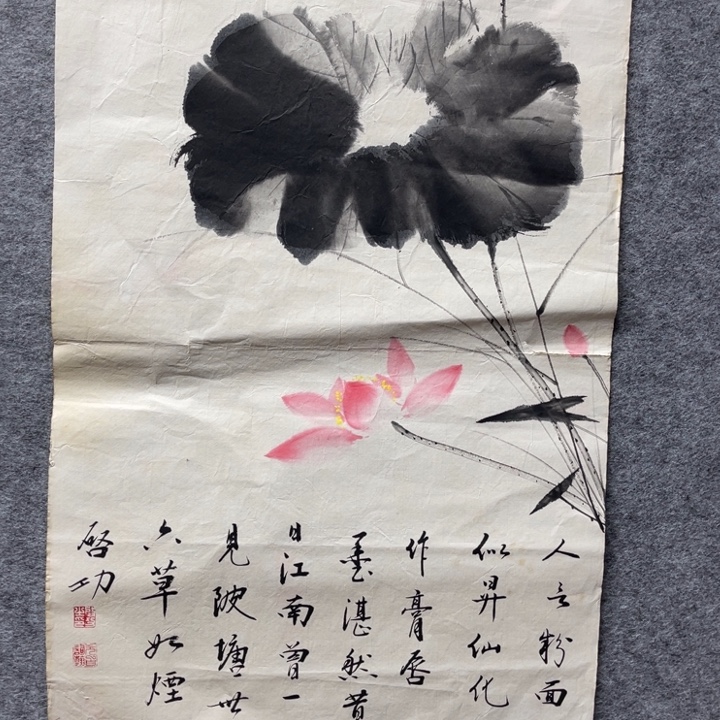 人言粉面
似昇仙化
作膏唇
墨湛然昔
日江南曾一
見陂塘卅
六草如煙
啓功